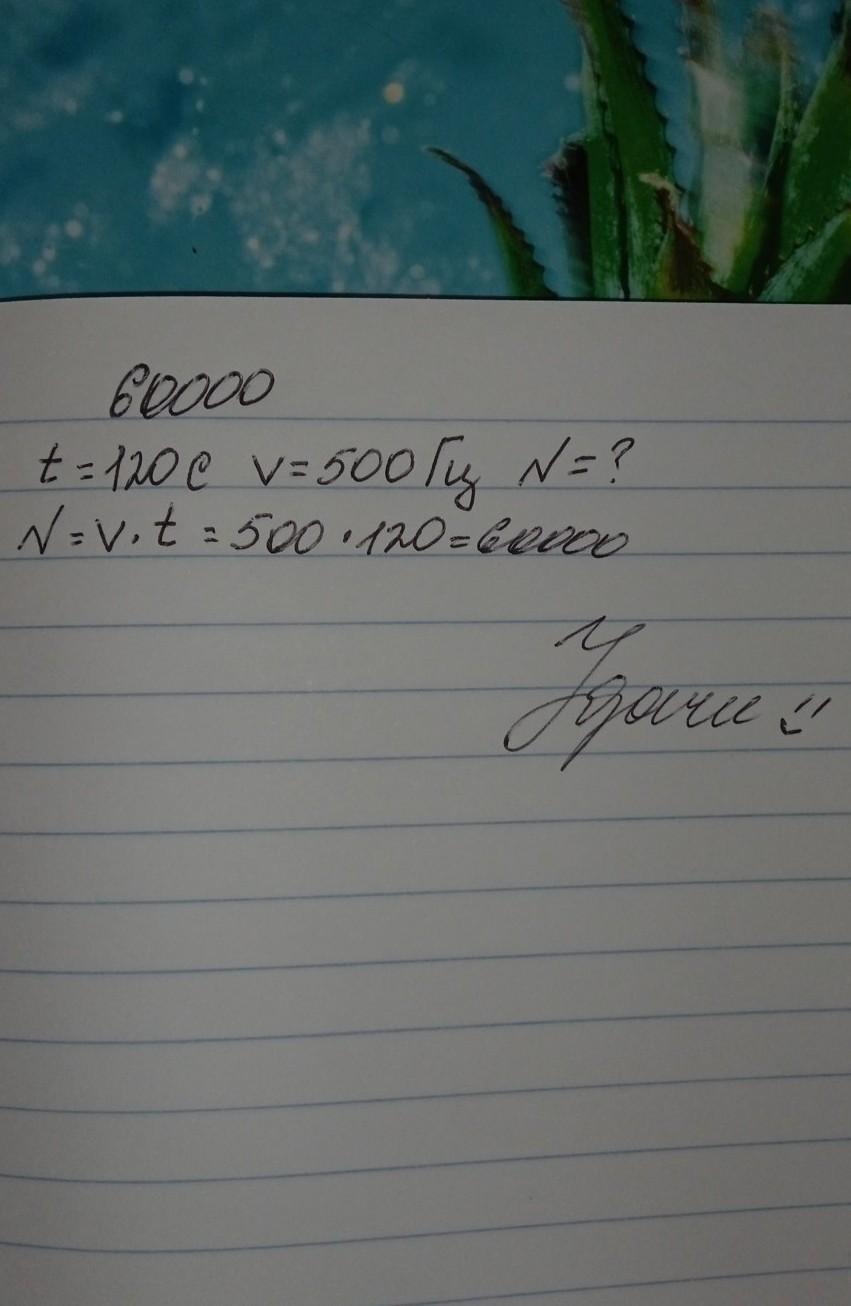 60000
t = 120 с v = 500 Гц N = ?
N = v · t = 500 · 120 = 60000
Удачи